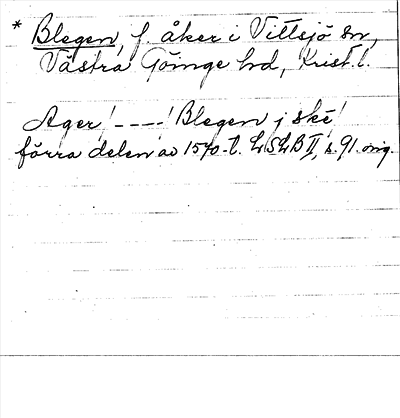 * Blegen, f. åker i Vittsjö sn,
Västra Göinge hd, Krist. l.
Ager! ----! Blegen j ske!
förra delen av 1570-t. LSLB II, s. 91. orig.